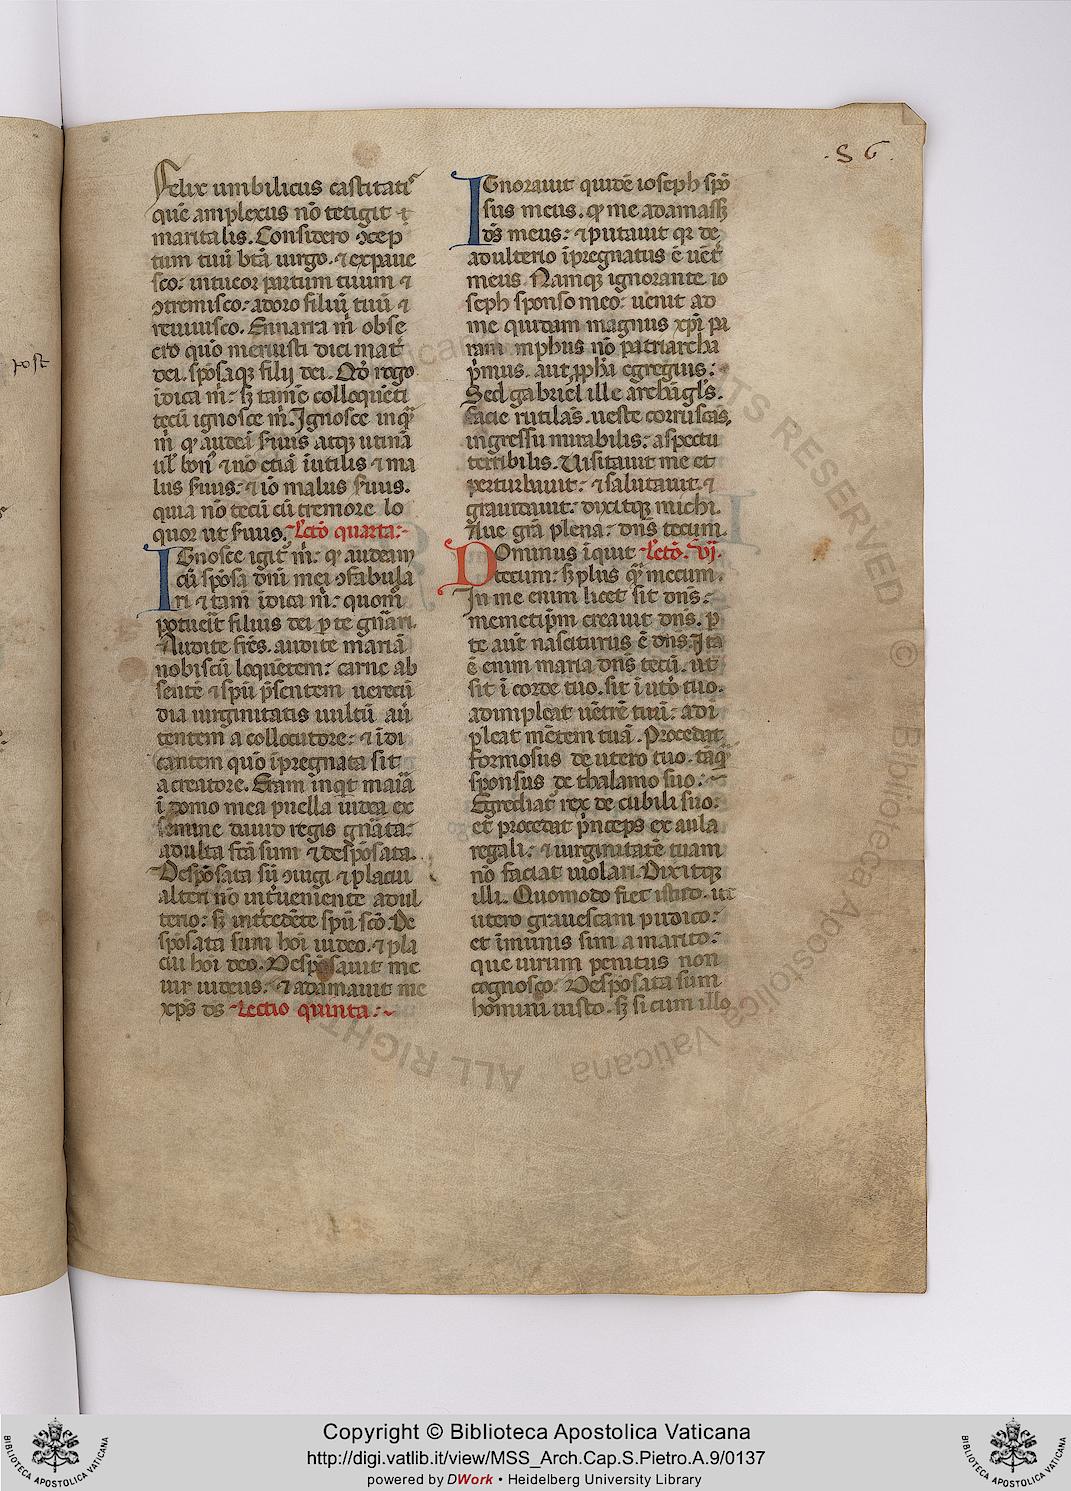 .S6.
post
Felix umbilicus castitatis
quē amplexus nō tetigit ⁊
maritalis. Considero ꝯcep
tum tuū btā uirgo. ⁊ expaue
sco: intueor partum tuum ⁊
ꝯtremisco: adoro filiū tuū ⁊
reuiuisco. Ennarra m̄ obse
cro quō meruisti dici mat̄
dei. spōsaqꝫ filij dei. Qd̄ rogo
īdica m̄: sꝫ tamē colloquēti
tecū ignosce m̄. Ignosce inq̄
m̄ qꝛ audeā seruus atqꝫ utinā
ul̄ bon⁹ ⁊ nō etiā īutilis ⁊ ma
lus seruus: ⁊ iō malus seruus.
quia nō tecū cū tremore lo
quor ut seruus. Lectō quarta:
IGnosce igit̄ m̄: qꝛ audeam
cū spōsa dnī mei ꝯfabula
ri ⁊ tam̄ īdica m̄: quom̄
potuerit filius dei per te gn̄ari.
Audite frēs. audite mariā
nobiscū loquētem: carne ab
sentē ⁊ spū p̄sentem uerecū
dia uirginitatis uultū au
tentem a collocutore: ⁊ īdi
cantem quō īpregnata sit
a creatore. Eram inqt mar̄ia
ī domo mea puella iudea ex
semine dauid regis gn̄ata:
adulta fc̄ta sum ⁊ despōsata.
Despōsata sū ꝯiugi ⁊ placui
alteri nō int̄ueniente adul
terio: sꝫ int̄cedēte spū scō. De
spōsata sum hoī iudeo. ⁊ pla
cui hoī deo. Despōsauit me
uir iudeus: ⁊ adamauit me
xp̄s ds̄ Lectio quinta:
IGnorauit quidē ioseph spō
sus meus. qꝛ me adamass̄
ds̄ meus: ⁊ putauit qꝛ de
adulterio īpregnatus ē uēt̄
meus. Namqꝫ ignorante io
seph sponso meo: uenit ad
me quidam magnus xp̄i pa
ranimphus nō patriarcha
p̄mus. aut ꝓph̄a egregius:
Sed gabriel ille archāgl̄s.
facie rutilās. ueste corruscās,
ingressu mirabilis: aspectu
terribilis. Uisitauit me et
perturbauit: ⁊ salutauit ⁊
grauidauit: dixitqꝫ michi.
Aue grā plena: dn̄s tecum.
DOminus īquit Lectō. vj.
tecum: sꝫ plus q̄ mecum.
In me enim licet sit dn̄s:
memetip̄m creauit dn̄s. p
te aut̄ nasciturus ē dn̄s. Ita
ē enim maria dn̄s tecū. ut
sit ī corde tuo. sit ī utō tuo.
adimpleat uētrē tuū: adi
pleat mētem tuā. Procedat
formosus de utero tuo. tāq̄
sponsus de thalamo suo:
Egrediat̄ rex de cubili suo:
et procedat p̄nceps ex aula
regali: ⁊ uirginitatē tuam
nō faciat uiolari. Dixitqꝫ
illi. Quomodo fiet istud. ut
utero grauescam pudico:
et īmunis sim a marito:
que uirum penitus non
cognosco: Despōsata sum
homini iusto. sꝫ si cum illo
ALL RIGHTS RESERVED © Biblioteca Apostolica Vaticana
Copyright © Biblioteca Apostolica Vaticana
http://digi.vatlib.it/view/MSS_Arch.Cap.S.Pietro.A.9/0137
powered by DWork • Heidelberg University Library
BIBLIOTECA APOSTOLICA VATICANA
BIBLIOTECA APOSTOLICA VATICANA